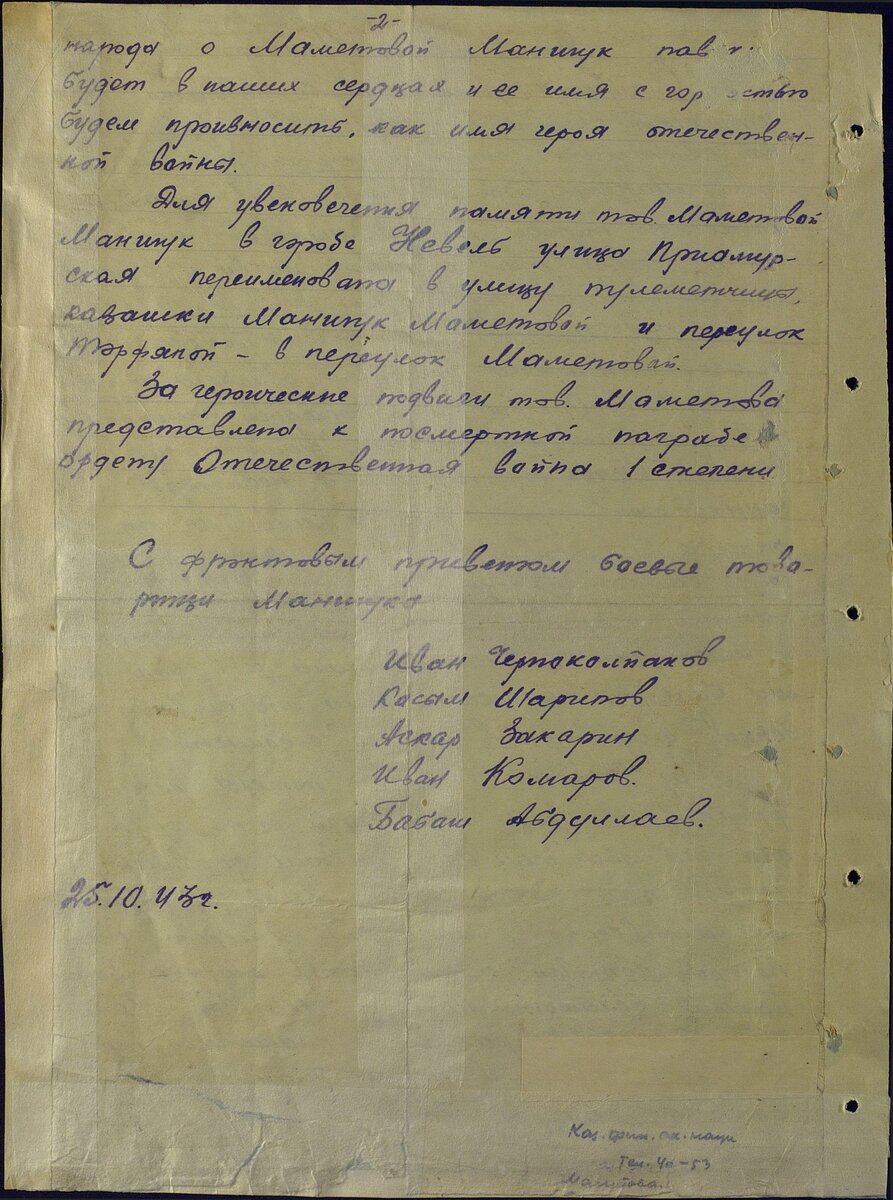 -2-
народа о Маметовой Маншук нав
будет в наших сердцах и ее имя с гор остью
будем произносить, как имя героя отечествен-
ной войны.
Для увековечения памяти тов. Маметовой
Маншук в городе Невель улица Приамур-
ская переименована в улицу пулеметчицы,
казашки Маншук Маметовой и переулок
Торфяной - в переулок Маметовой.
За героические подвиги тов. Маметова
представлена к посмертной награде
ордену Отечественная война 1 степени
С фронтовым приветом боевые това-
рищи Маншука
Иван Черноколпаков
Касым Шарипов
Аскар Закарин
Иван Комаров.
Бабаш Абдуллаев.
25.10.43г.
Каз. фил. ак. наук
Тел. 40-53